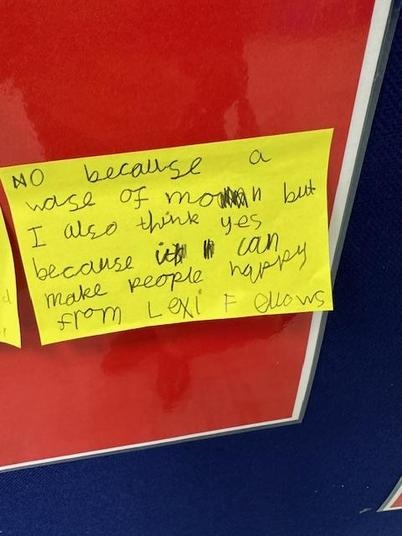 NO because a
wase of mo n but
I also think yes
because it can
make people happy
from Lexi F ellows